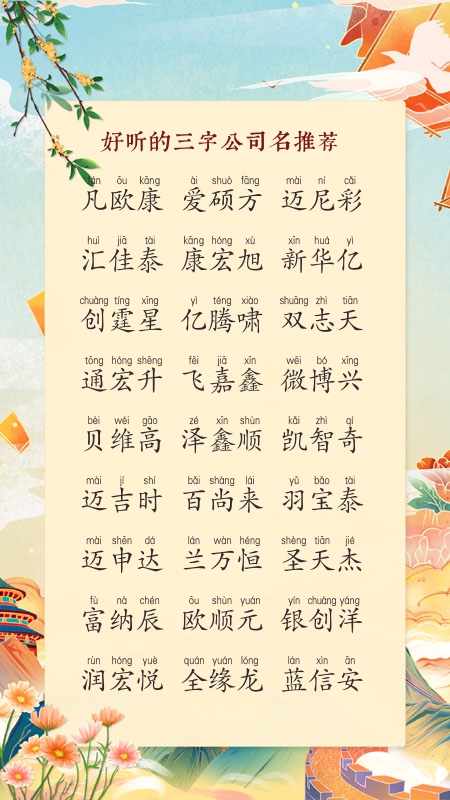 好听的三字公司名推荐
fán ōu kāng ài shuò fāng mài ní cǎi
凡欧康 爱硕方 迈尼彩
huì jiā tài kāng hóng xù xīn huá yì
汇佳泰 康宏旭 新华亿
chuàng tíng xīng yì téng xiào shuāng zhì tiān
创霆星 亿腾啸 双志天
tōng hóng shēng fēi jiā xīn wēi bó xīng
通宏升 飞嘉鑫 微博兴
bèi wéi gāo zé xīn shùn kǎi zhì qí
贝维高 泽鑫顺 凯智奇
mài jí shí bǎi shàng lái yǔ bǎo tài
迈吉时 百尚来 羽宝泰
mài shēn dá lán wàn héng shèng tiān jié
迈申达 兰万恒 圣天杰
fù nà chén ōu shùn yuán yín chuàng yáng
富纳辰 欧顺元 银创洋
rùn hóng yuè quán yuán lóng lán xìn ān
润宏悦 全缘龙 蓝信安